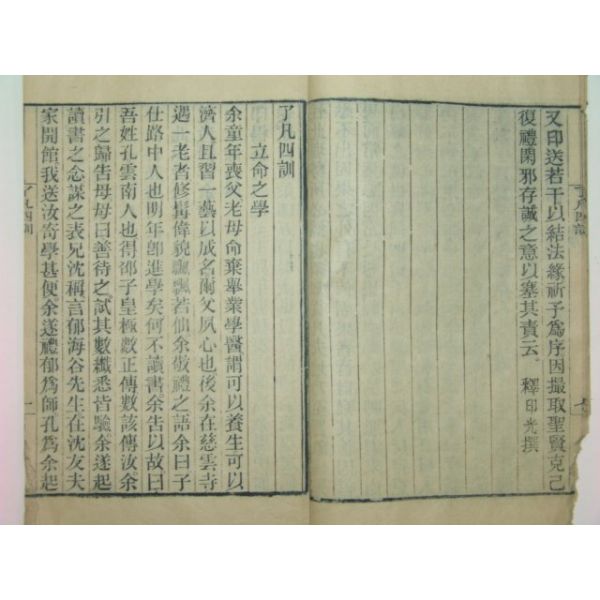 又印送若干以結法緣祈予爲序因撮取聖賢克己
復禮閑邪存誠之意以塞其責云 釋印光撰
了凡四訓
了凡四訓
立命之學
余童年喪父老母命棄舉業學醫謂可以養生可以
濟人且習一藝以成名爾父夙心也後余在慈雲寺
遇一老者修髯偉貌飄飄若仙余敬禮之語余曰子
仕路中人也明年卽進學矣何不讀書余告以故曰
吾姓孔雲南人也得邵子皇極數正傳數該傳汝余
引之歸告母母曰善待之試其數纖悉皆驗余遂起
讀書之念謀之表兄沈稱言郁海谷先生在沈友夫
家開館我送汝寄學甚便余遂禮郁爲師孔爲余起
了凡四訓
一